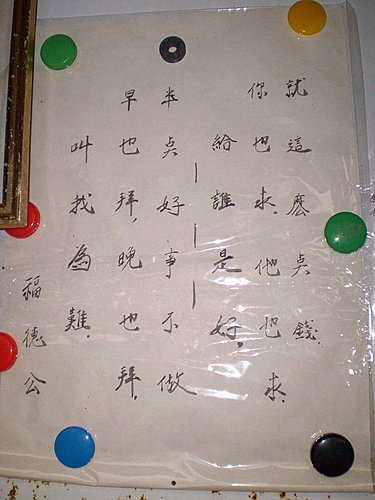 就這麽奌錢,
你也求,他也求,
給誰是好,
半奌好事不做
早也拜,晚也拜,
叫我為難,
福德公